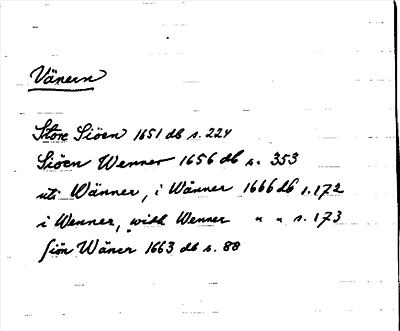 Vänern
Store Siöen 1651 db s. 224
Siöen Wenner 1656 db s. 353
uti Wänner, i Wänner 1666 db s. 172
i Wenner, widh Wenner " " s. 173
siön Wäner 1663 db s. 88